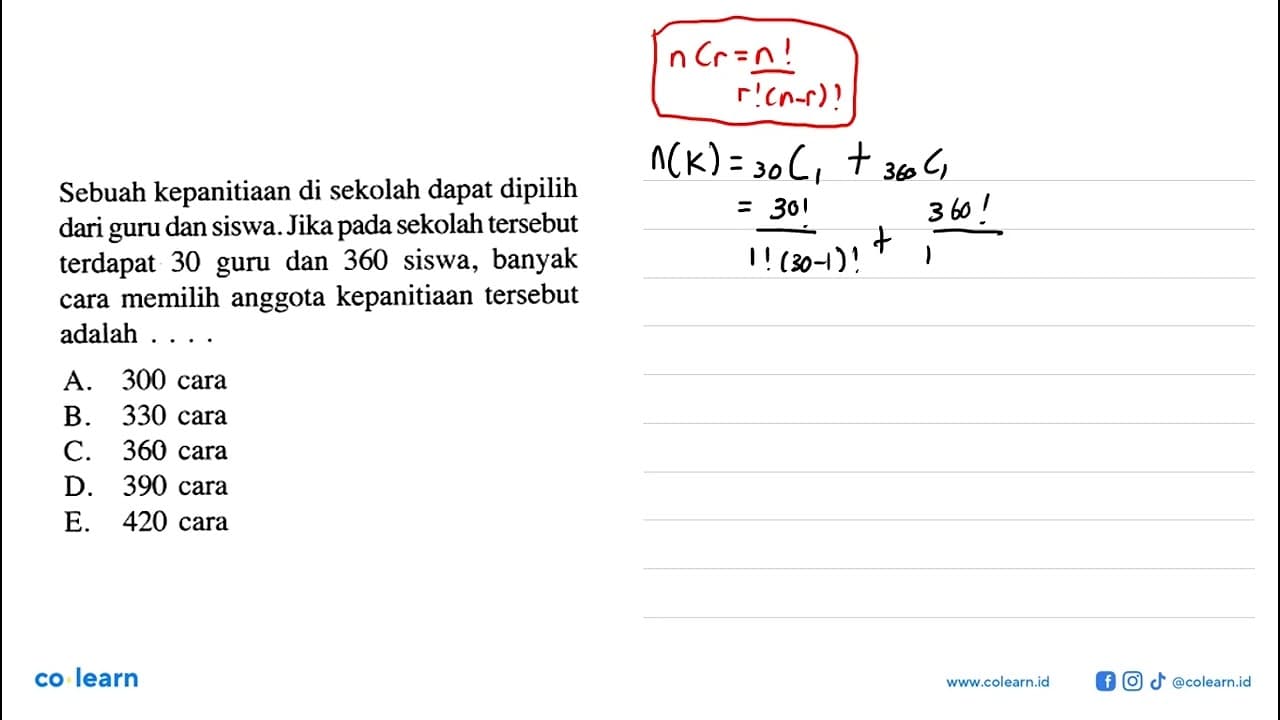 Sebuah kepanitiaan di sekolah dapat dipilih
dari guru dan siswa. Jika pada sekolah tersebut
terdapat 30 guru dan 360 siswa, banyak
cara memilih anggota kepanitiaan tersebut
adalah . . . .
A. 300 cara
B. 330 cara
C. 360 cara
D. 390 cara
E. 420 cara
nCr = n!
r!(n-r)!
n(K) = 30C1 + 360C1
= 30! + 360!
1!(30-1)! 1
co learn
www.colearn.id @colearn.id